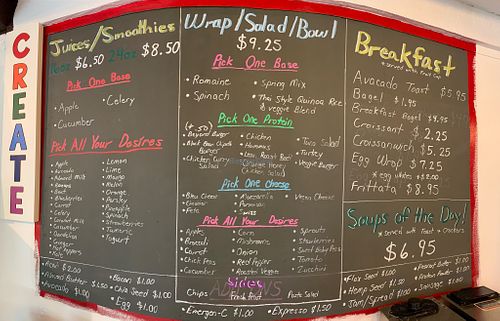 CREATE
Juices/Smoothies
16oz $6.50 24oz $8.50
Pick One Base
Apple
Celery
Cucumber
Pick All Your Desires
Apple
Avocado
Almond Milk
Banana
Beet
Blueberries
Carrot
Celery
Coconut Milk
Cucumber
Dandelion
Ginger
Kale
Lemon
Lime
Mango
Melon
Orange
Parsley
Pineapple
Spinach
Strawberries
Turmeric
Yogurt
Wrap/Salad/Bowl
$9.25
Pick One Base
Romaine
Spring Mix
Spinach
Thai Style Quinoa Rice & Veggie Blend
Pick One Protein
(+.50)
Beyond Burger
Black Bean Chipotle Burger
Chicken Curry Salad
Chicken
Hummus
Low Roast Beef
Chicken Salad
Tuna Salad
Turkey
Veggie Burger
Pick One Cheese
Bleu Cheese
Cheddar
Feta
Mozzarella
Parmesan
Swiss
Vegan Cheese
Pick All Your Desires
Apples
Avocado
Broccoli
Carrot
Chick Peas
Cucumber
Corn
Mushrooms
Onion
Red Pepper
Roasted Veggies
Sprouts
Strawberries
Sweet Baby Peas
Tomato
Zucchini
Sides
Chips
Fresh Fruit
Pasta Salad
Breakfast
* served with Fruit Cup
Avocado Toast $5.95
Bagel $1.95
Breakfast Bagel $4.95
Croissant $2.25
Croissanwich $5.25
Egg Wrap $7.25
* egg whites + $2.00
Frittata $8.95
Soups of the Day!
* served with Toast or Crackers
$6.95
ADD ONS
Acai $2.00
Almond Butter $1.50
Avocado $1.00
Bacon $1.00
Chia Seed $1.00
Egg $1.00
Energen-C $1.00
Expresso $1.50
Flax Seed $1.00
Hemp Seed $1.50
Jam/Spread $1.00
Peanut Butter $1.00
Protein Powder $1.00
Sausage $1.00